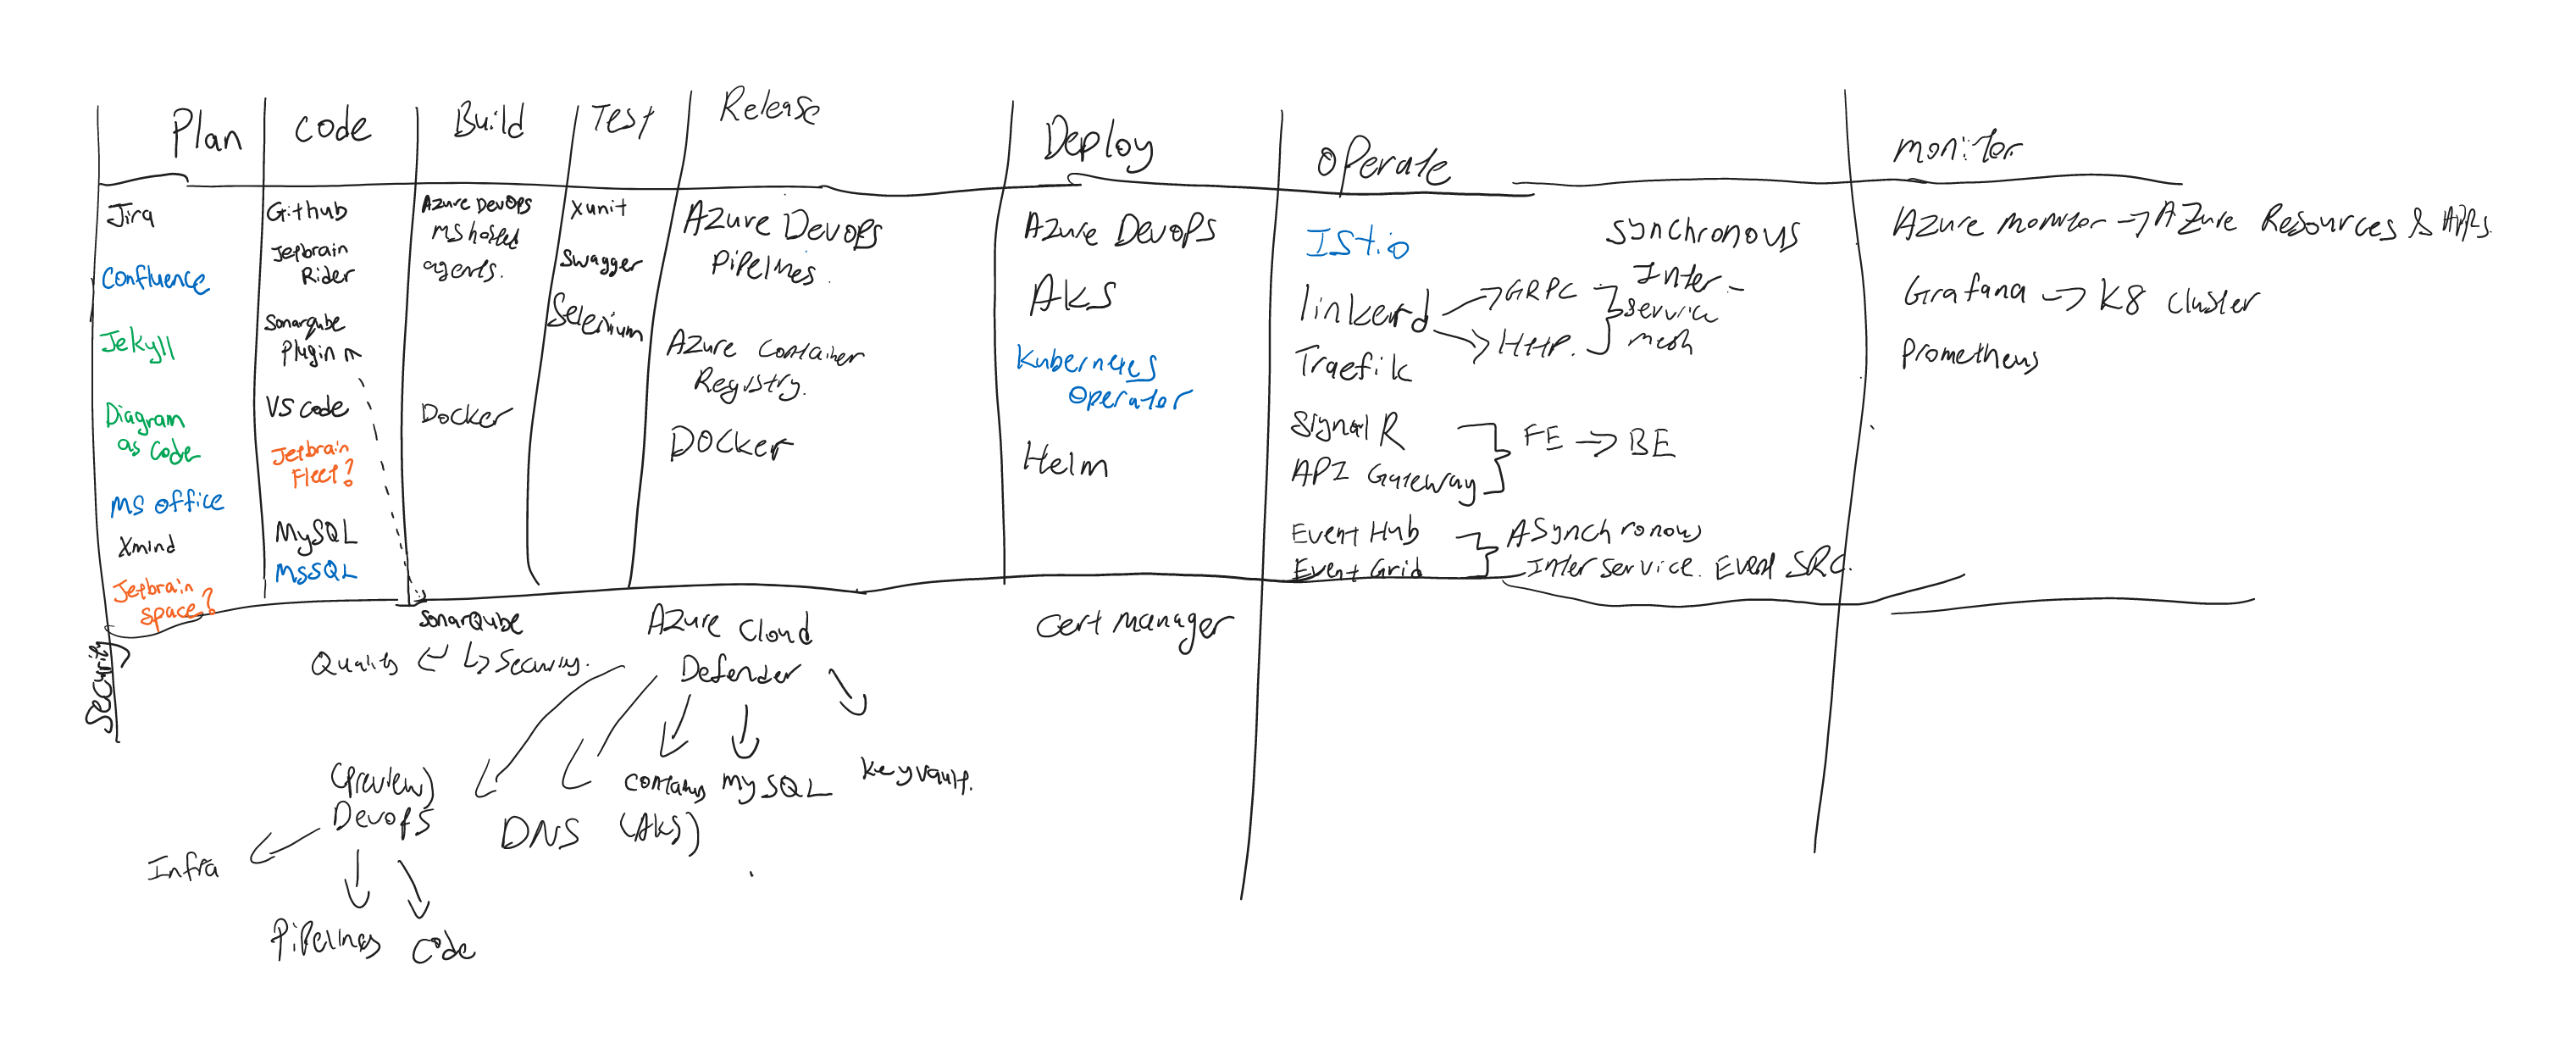 Plan
Code
Build
Test
Release
Deploy
Operate
monitor
Jira
Confluence
Jekyll
Diagram
as code
MS office
Xmind
Jetbrain
space?
Github
Jetbrain
Rider
Sonarqube
Plugin
VS code
Jetbrain
Fleet?
MySQL
MSSQL
Azure DevOps
MS hosted
agents.
Docker
Xunit
Swagger
Selenium
Azure DevOps
Pipelines
Azure Container
Registry.
Docker
Azure DevOps
AKS
Kubernetes
Operator
Helm
Istio
linkerd
GRPC
HTTP.
Synchronous
Inter -
service
mesh
Traefik
Signal R
API Gateway
FE → BE
Event Hub
Event Grid
Asynchronous
Inter service. Event SRC.
Azure monitor → Azure Resources & APPs.
Grafana → K8 Cluster
Prometheus
Security
SonarQube
Quality
Security.
Azure Cloud
Defender
Cert manager
(Preview)
Devops
Infra
Pipelines
Code
DNS
(AKS)
MySQL
Keyvault.